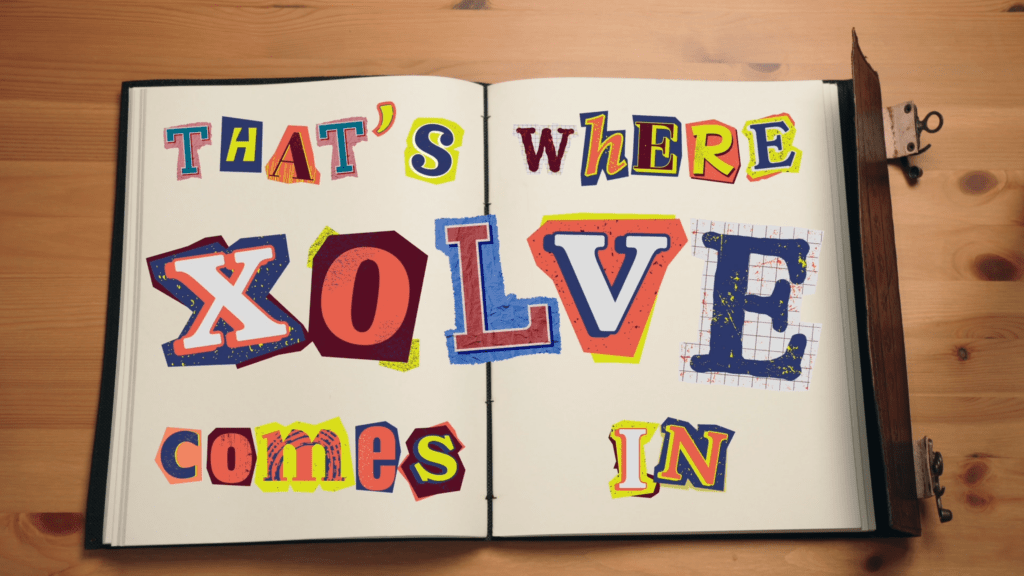 THAT'S WhERE
XOLVE
comes IN